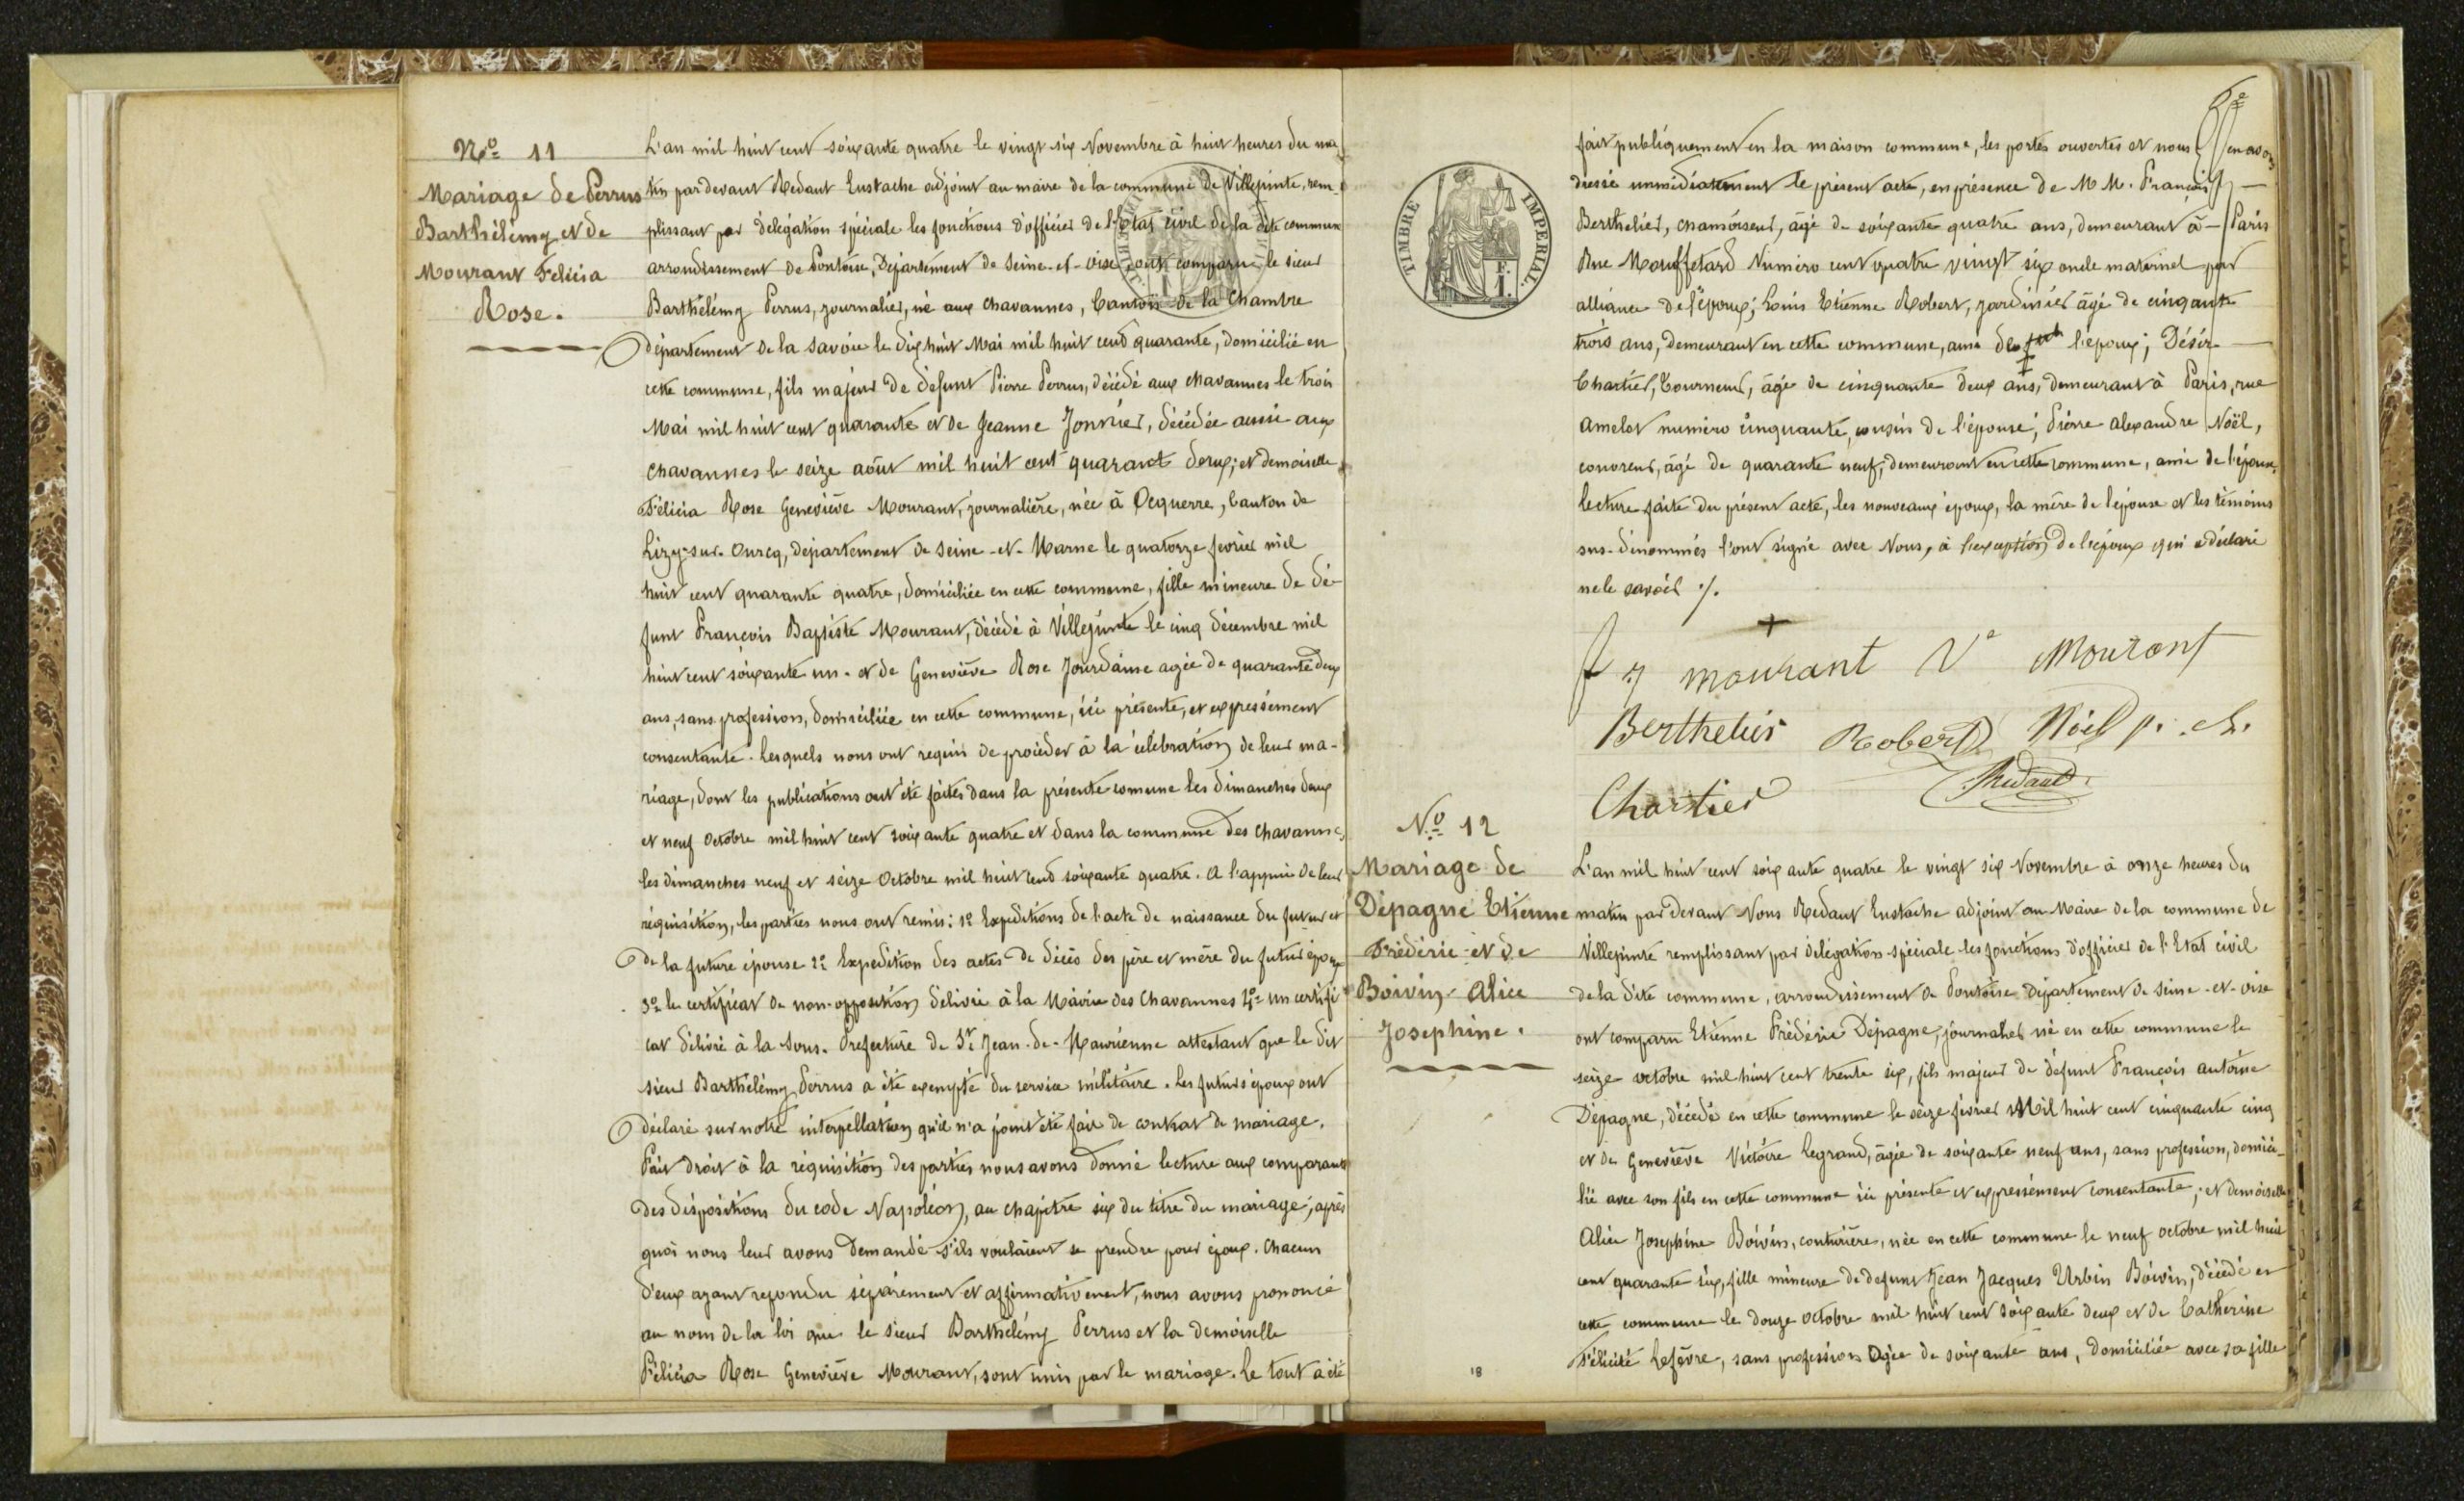 Nº 11
Mariage de Perrus
Barthélémy et de
Mourant Felicia
Rose.
L'an mil huit cent soixante quatre le vingt six Novembre à huit heures du ma-
tin par devant Redaut Eustache adjoint au maire de la commune de Villepinte, rem-
plissant par délégation spéciale les fonctions d'officier de l'Etat civil de la dite commune
arrondissement de Pontoise, Département de Seine-et-Oise, ont comparu le sieur
Barthélémy Perrus, journalier, né aux Chavannes, Canton de la Chambre
département de la Savoie le dix huit Mai mil huit cent quarante, domicilié en
cette commune, fils majeur de défunt Pierre Perrus, décédé aux Chavannes le trois
Mai mil huit cent quarante et de Jeanne Jonnier, décédée aussi aux
Chavannes le seize août mil huit cent quarante deux; et demoiselle
Félicia Rose Geneviève Mourant, journalière, née à Ocquerre, Canton de
Lizy-sur-Ourcq, département de Seine-et-Marne le quatorze fevrier mil
huit cent quarante quatre, domiciliée en cette commune, fille mineure de dé-
funt François Baptiste Mourant, décédé à Villepinte le cinq décembre mil
huit cent soixante un. et de Geneviève Rose Jourdaine agée de quarante deux
ans, sans profession, domiciliée en cette commune, ici présente, et expressément
consentante. Lesquels nous ont requis de procéder à la célébration de leur ma-
riage, dont les publications ont été faites dans la présente comune les dimanches deux
et neuf Octobre mil huit cent soixante quatre et dans la commune des Chavannes,
les dimanches neuf et seize Octobre mil huit cent soixante quatre. A l'appui de leur
réquisition, les parties nous ont remis: 1º Expéditions de l'acte de naissance du futur et
de la future épouse 2º Expédition des actes de décès des père et mère du futur époux
3º le certificat de non-opposition délivré à la Mairie des Chavannes 4º un certifi-
cat délivré à la Sous-Préfecture de St Jean-de-Maurienne attestant que le dit
sieur Barthélémy Perrus a été exempté du service militaire. Les futurs époux ont
déclaré sur notre interpellation qu'il n'a point été fait de contrat de mariage.
Fait droit à la réquisition des parties nous avons donné lecture aux comparants
des dispositions du code Napoléon, au chapitre six du titre du mariage; après
quoi nous leur avons demandé s'ils voulaient se prendre pour époux. Chacun
d'eux ayant repondu séparément et affirmativement, nous avons prononcé
au nom de la loi que le sieur Barthélémy Perrus et la demoiselle
Félicia Rose Geneviève Mourant, sont unis par le mariage. Le tout a été
TIMBRE IMPERIAL
fait publiquement en la maison commune, les portes ouvertes et nous en avons
dressé immédiatement le présent acte, en présence de M M. François
Berthelier, chamoiseur, âgé de soixante quatre ans, demeurant à Paris
Rue Mouffetard Numéro cent quatre vingt six oncle maternel par
alliance de l'époux; Louis Etienne Robert, jardinier âgé de cinquante
trois ans, demeurant en cette commune, ami de l'époux; Désiré
Chartier, Tourneur, âgé de cinquante deux ans, demeurant à Paris, rue
Amelot numéro cinquante, cousin de l'épouse; Pierre Alexandre Noël,
couvreur, âgé de quarante neuf, demeurant en cette commune, ami de l'épouse,
lecture faite du présent acte, les nouveaux époux, la mère de l'épouse et les témoins
sus-dénommés l'ont signé avec Nous, à l'exception de l'époux qui a déclaré
ne le savoir ./.
+
mourant Ve Mourant
Berthelier Robert Noël p. .
Chartier Redaut
Nº 12
Mariage de
Dépagne Etienne
Frédéric et de
Boivin Alice
Josephine.
L'an mil huit cent soixante quatre le vingt six Novembre à onze heures du
matin par devant Nous Redaut Eustache adjoint au Maire de la commune de
Villepinte remplissant par délégation spéciale les fonctions d'officier de l'Etat civil
de la dite commune, arrondissement de Pontoise département de Seine-et-Oise
ont comparu Etienne Frédéric Dépagne, journalier né en cette commune le
seize octobre mil huit cent trente six, fils majeur de défunt François Antoine
Dépagne, décédé en cette commune le seize février Mil huit cent cinquante cinq
et de Geneviève Victoire Legrand, âgée de soixante neuf ans, sans profession, domici-
lié avec son fils en cette commune ici présente et expressément consentante; et demoiselle
Alice Josephine Boivin, couturière, née en cette commune le neuf octobre mil huit
cent quarante six, fille mineure de defunt Jean Jacques Urbin Boivin, décédé en
cette commune le douze octobre mil huit cent soixante deux et de Catherine
Félicité Lefèvre, sans profession Agée de soixante ans, domiciliée avec sa fille
18